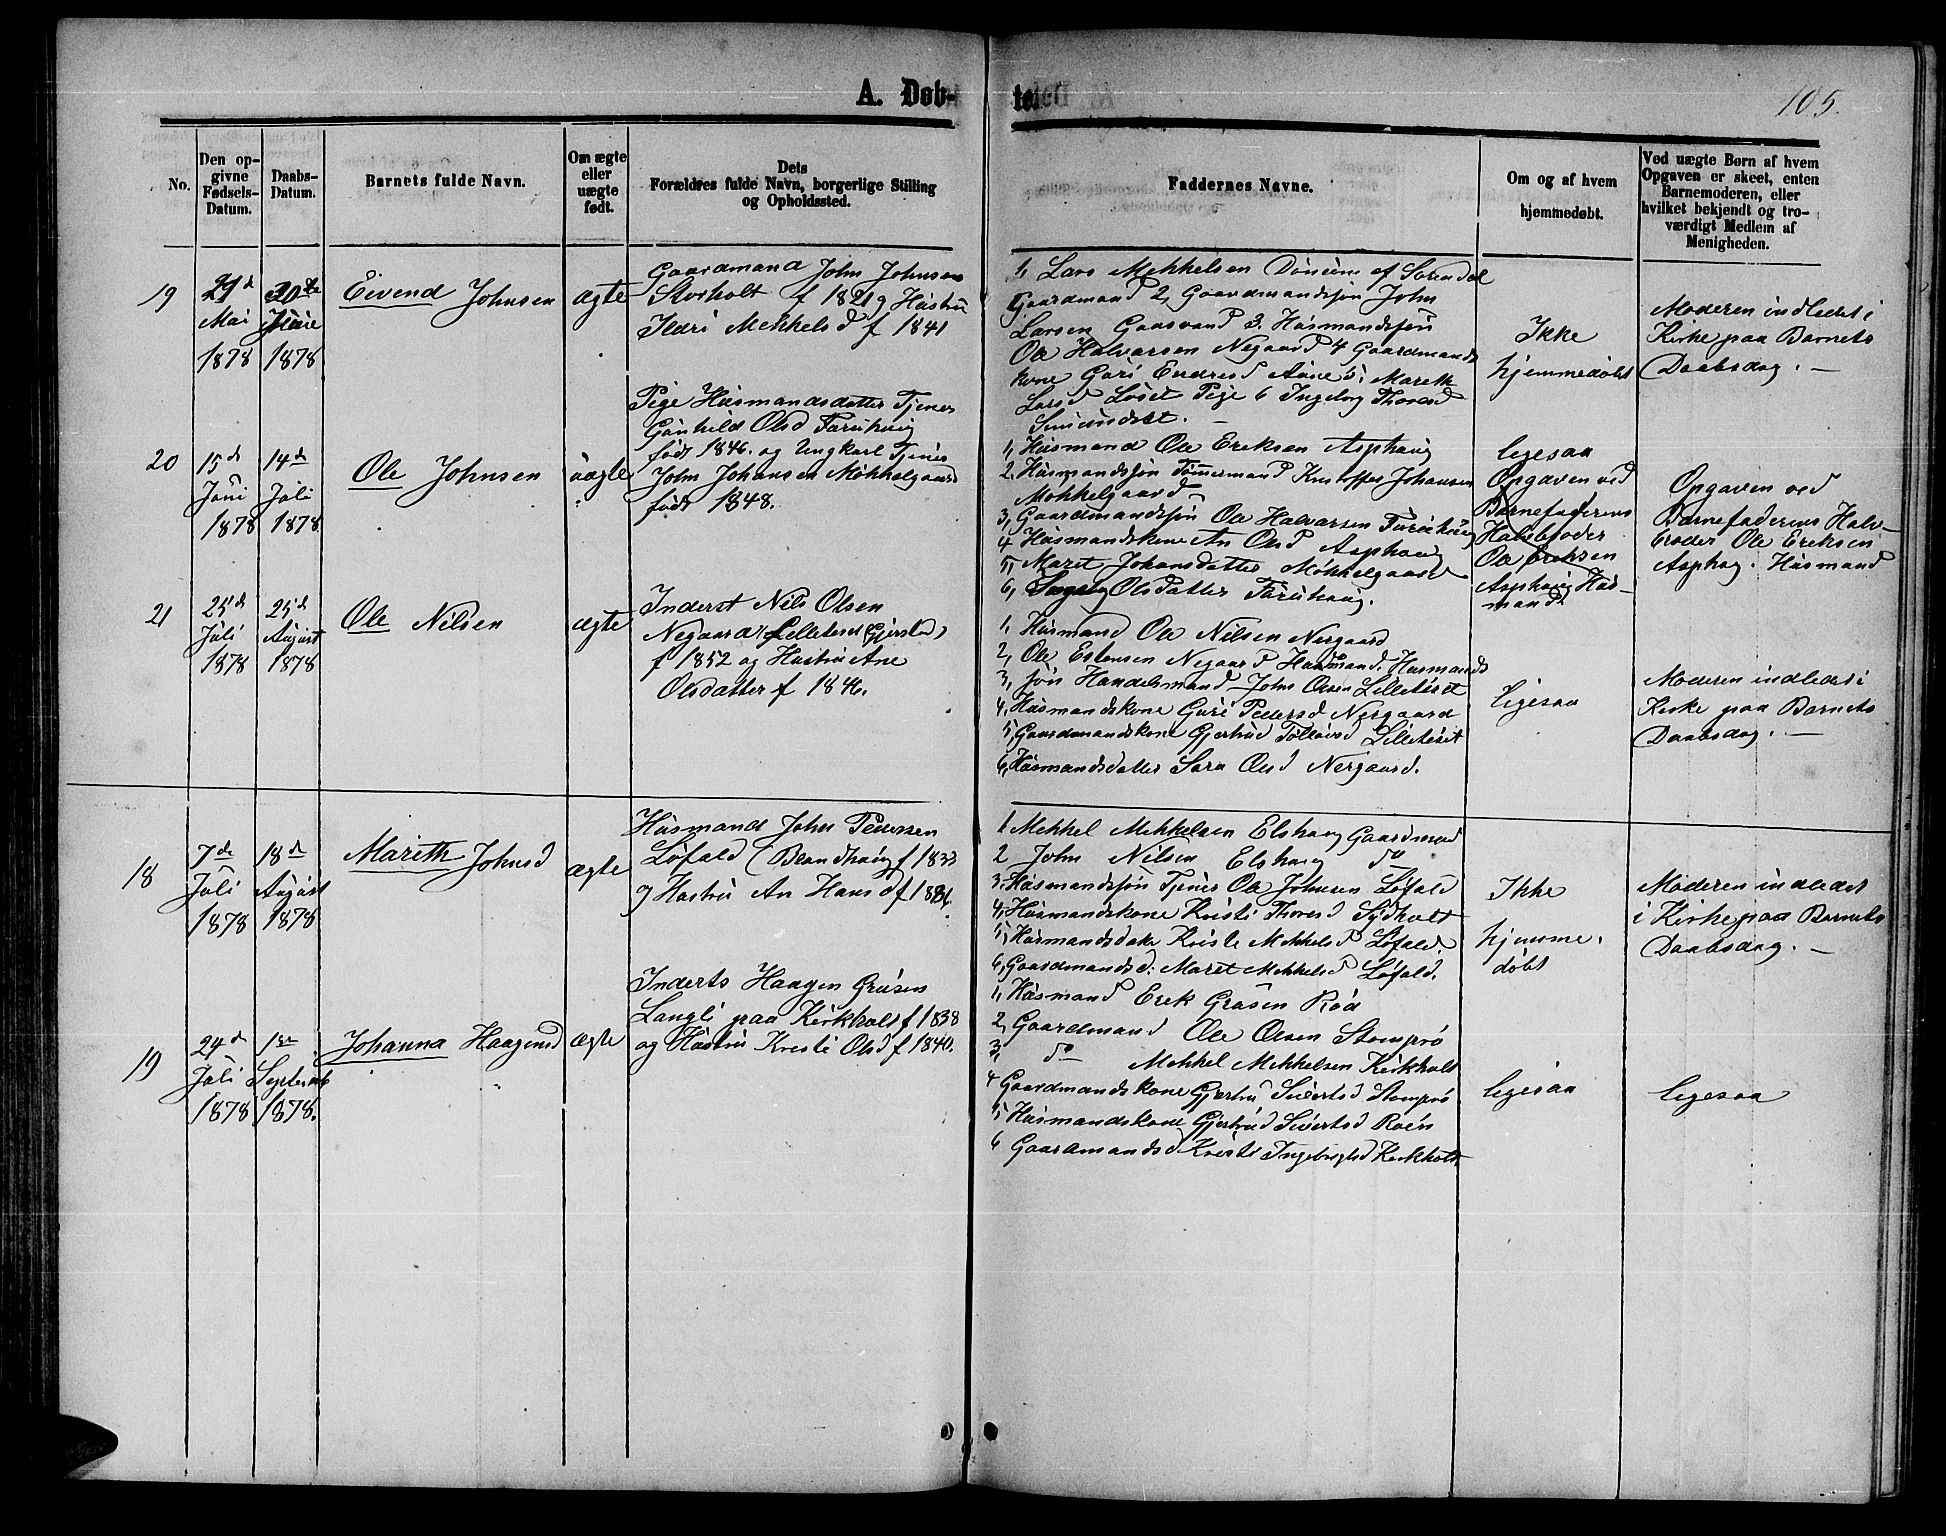 A. Døb-
te.
105.
No.
Den op-
givne
Fødsels-
Datum.
Daabs-
Datum.
Barnets fulde Navn.
Om ægte
eller
uægte
født.
Dets
Forældres fulde Navn, borgerlige Stilling
og Opholdssted.
Faddernes Navne.
Om og af hvem
hjemmedøbt.
Ved uægte Børn af hvem
Opgaven er skeet, enten
Barnemoderen, eller
hvilket bekjendt og tro-
værdigt Medlem af
Menigheden.
19
Mai
1878
30te
1878
Eivend Johnsen
ægte
Gaardmand John Johnsen
Storholt f 1821 og Hustru
Ildri Mekkelsd f 1841
1, Lars Mekkelsen af
Gaardmand 2, Gaardmandssøn John
Larsen Gaasvand 3. Husmandssøn
Ole Halvorsen Negaard 4 Gaardmands
kone Guri Endresd Aune 5. Mareth
Larsd Løset Pige 6 Ingeborg Thoresd
Simundset.
Ikke
hjemmedøbt
Moderen indledet i
Kirke paa Barnets
Daabsdag. —
20
15d
Juni
1878
14d
Juli
1878
Ole Johnsen
uægte
Pige Husmandsdatter Tjener
Gunhild Olsd Faruhaug
født 1846. og Ungkarl Tjener
John Johansen Mokkelgaard
født 1848.
1, Husmand Ole Eriksen Asphaug
2. Husmandssøn Tømmermand Kristoffer Johansen
Mokkelgaard
3, Gaardmandssøn Ole Halvorsen Faruhaug
4 Husmandskone An Olsd Asphaug
5, Maret Johansdatter Mokkelgaard
6, Olsdatter Faruhaug.
ligesaa
Opgaven ved
Barnefaderens
Halvbroder
Ole Eriksen
Asphaug Hus-
mand
Opgaven ved
Barnefaderens Halv-
broder Ole Eriksen
Asphaug. Husmand
21
25d
Juli
1878
25d
August
1878
Ole Nilsen
ægte
Inderst Nils Olsen
Negaard (Lilleteset
f 1852 og Hustru Ane
Olsdatter f 1846.
1, Husmand Ole Nilsen Nergaard
2, Ole Estensen Negaard Husmand. Husmands
3, søn Handelsmand John Olsen Lilleteset
4, Husmandskone Guri Pedersd Nergaard
5, Gaardmandskone Gjertrud Lilleteset
6, Husmandsdatter Sara Olsd Nergaard.
ligesaa
Moderen indledet i
Kirke paa Barnets
Daabsdag. —
18
7de
Juli
1878
18d
August
1878
Mareth Johnsd
ægte
Husmand John Pedersen
Løfald (Brandhaug f 1833
og Hustru An Hansd f
1 Mekkel Mekkelsen Elshaug Gaardmand
2 John Nilsen Elshaug do
3, Husmandssøn Tjener Ole Johnsen Løfald
4, Husmandskone Kristi Thoresd Sydholt
5, Husmandsdatr Kristi Mekkelsd Løfald.
6, Gaardmandsd: Maret Mekkelsd Løfald.
Ikke
hjemme.
døbt
Moderen indledet
i Kirke paa Barnets
Daabsdag. —
19
24d
Juli
1878
1ste
Septemb
1878.
Johanna Haagensd
ægte
Inderts Haagen Grusen
Langli paa Kirkholt f 1838
og Hustru Kristi Olsd f 1840.
1, Husmand Erik Grusen Roa
2, Gaardmand Ole Olsen Stomprø
3, do Mekkel Mekkelsen Kirkholt
4 Gaardmandskone Gjertru Sivertsd Stomprø
5, Husmandskone Gjertrud Sivertsd Roen
6 Gaardmandsd Kristi Ingebrigtsd Kirkholt
ligesaa
ligesaa